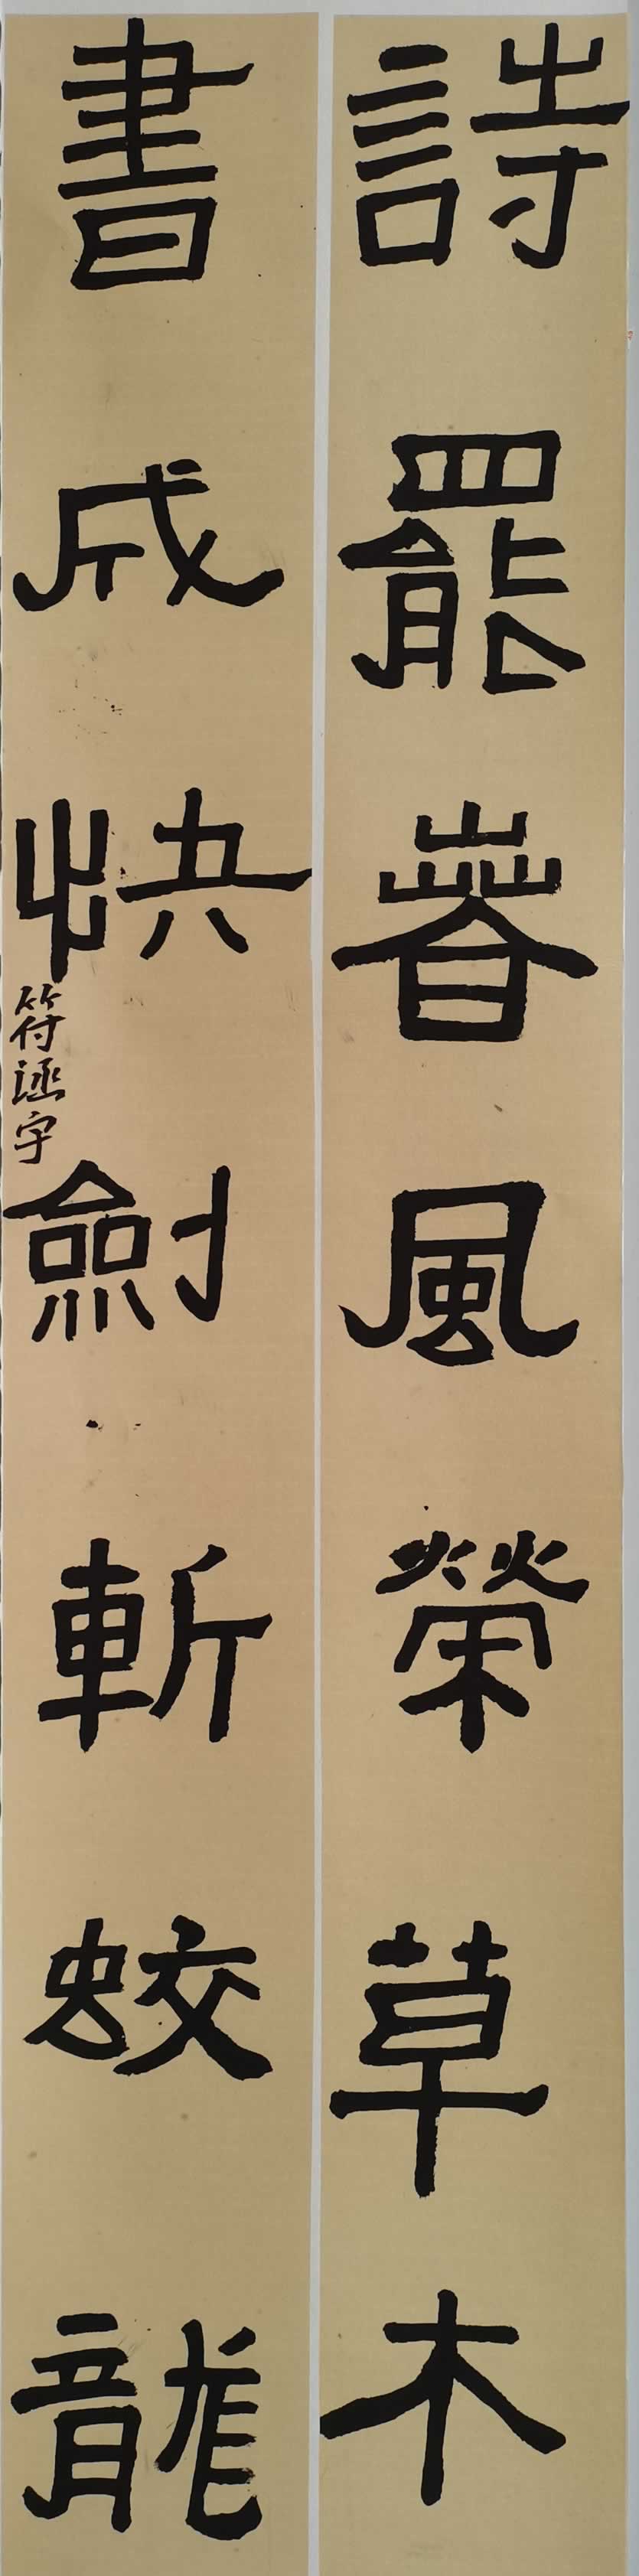 詩罷春風榮草木
書成快劍斬蛟龍
符涵宇